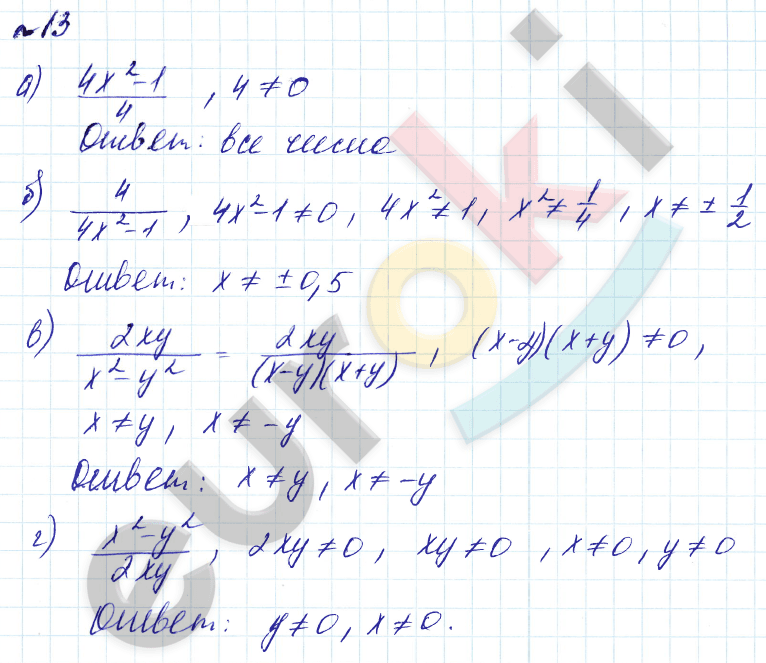 №13
а) (4x²-1)/4 , 4≠0
Ответ: все числа
б) 4/(4x²-1) , 4x²-1≠0, 4x²≠1, x²≠1/4 , x≠±1/2
Ответ: x≠±0,5
в) 2xy/(x²-y²) = 2xy/((x-y)(x+y)) , (x-y)(x+y)≠0,
x≠y, x≠-y
Ответ: x≠y, x≠-y
г) (x²-y²)/(2xy) , 2xy≠0, xy≠0 , x≠0, y≠0
Ответ: y≠0, x≠0.
euroki